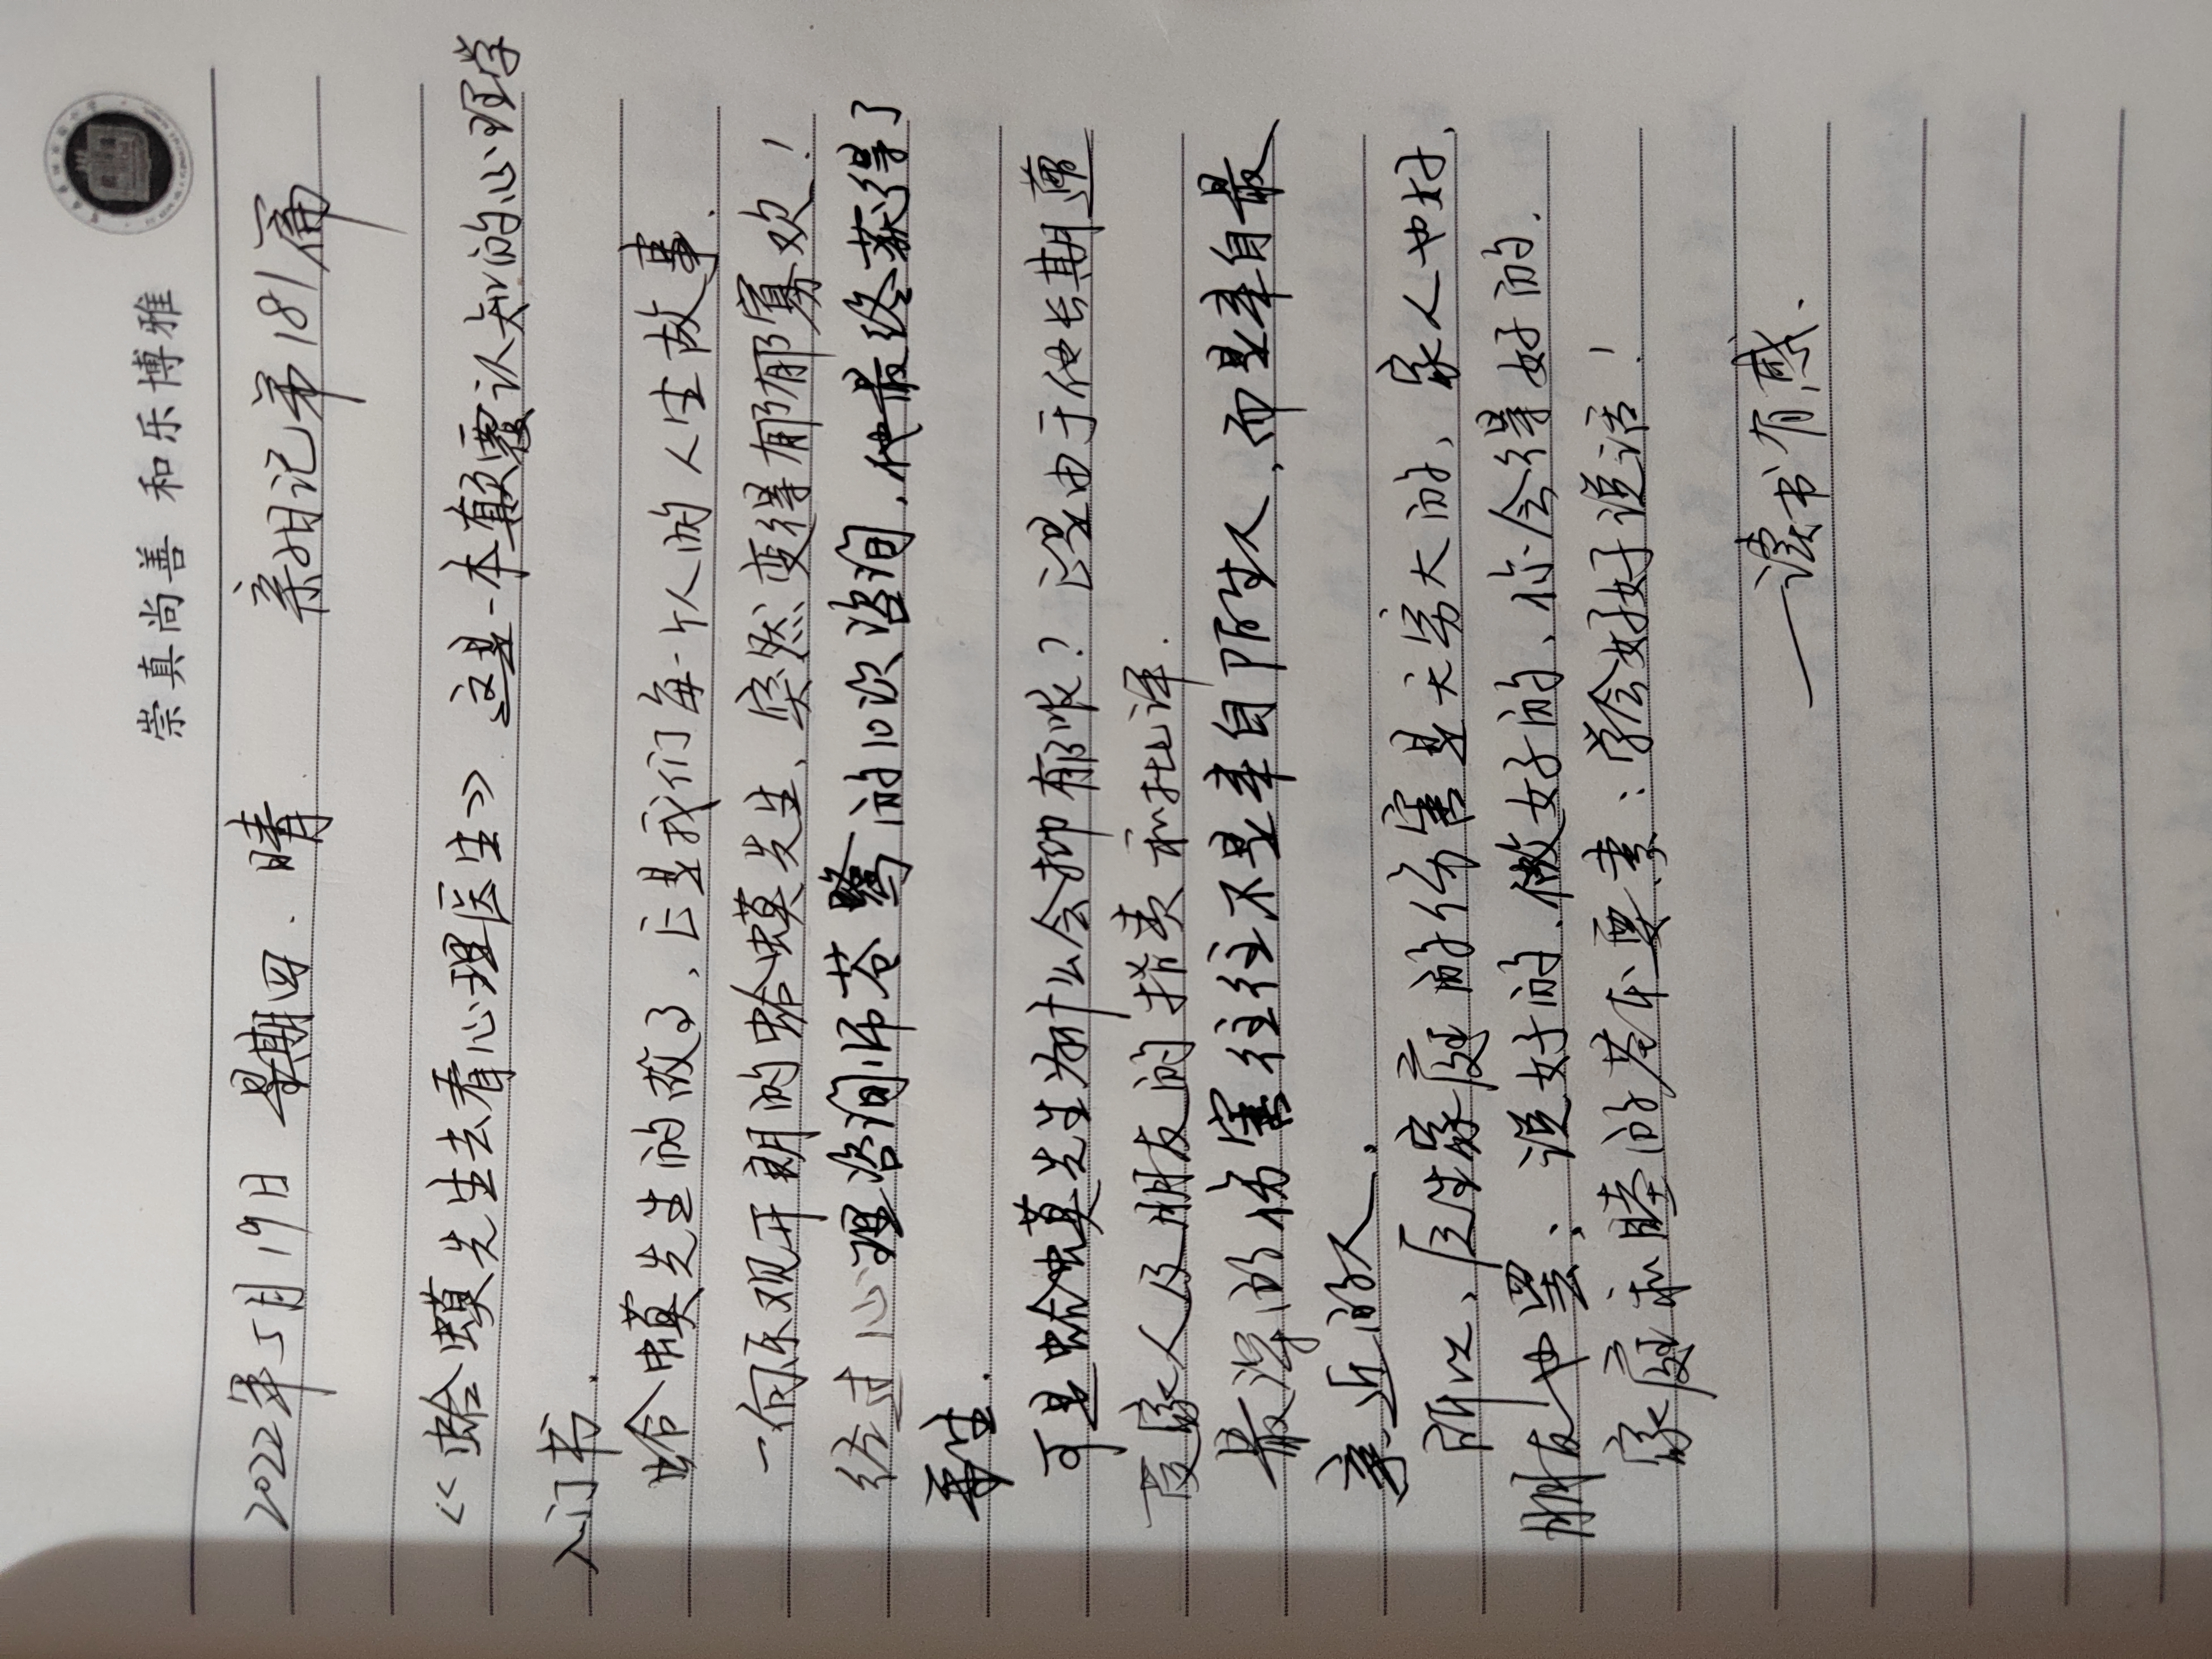 崇真尚善 和乐博雅
2022年5月19日 星期四. 晴 亲子日记第181篇
《蛤蟆先生去看心理医生》这是一本颠覆认知的心理学
入门书.
蛤蟆先生的故事, 正是我们每一个人的人生故事.
一向乐观开朗的蛤蟆先生、突然变得郁郁寡欢!
经过心理咨询师苍鹭的10次咨询, 他最终获得了
重生.
可是蛤蟆先生为什么会抑郁呢? 正是由于他长期遭
受家人及朋友的指责和批评.
最深的伤害往往不是来自陌生人, 而是来自最
亲近的人.
所以、原生家庭的伤害是无穷大的、家人也好、
朋友也罢、说好的、做好的、你会得好的.
家庭和睦的基本要素: 学会好好说话!
——读书有感.